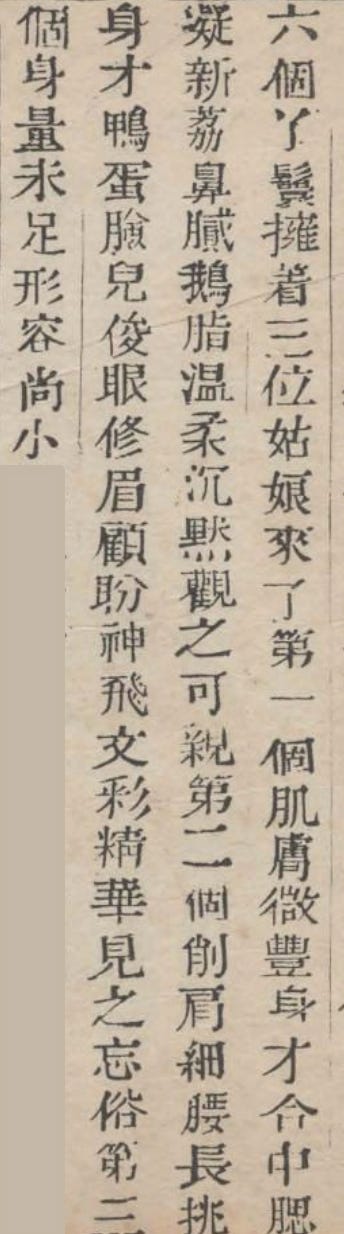 六個丫鬟擁着三位姑娘來了第一個肌膚微豐身才合中腮
凝新荔鼻膩鵝脂温柔沉默觀之可親第二個削肩細腰長挑
身才鴨蛋臉兒俊眼修眉顧盼神飛文彩精華見之忘俗第三
個身量未足形容尚小